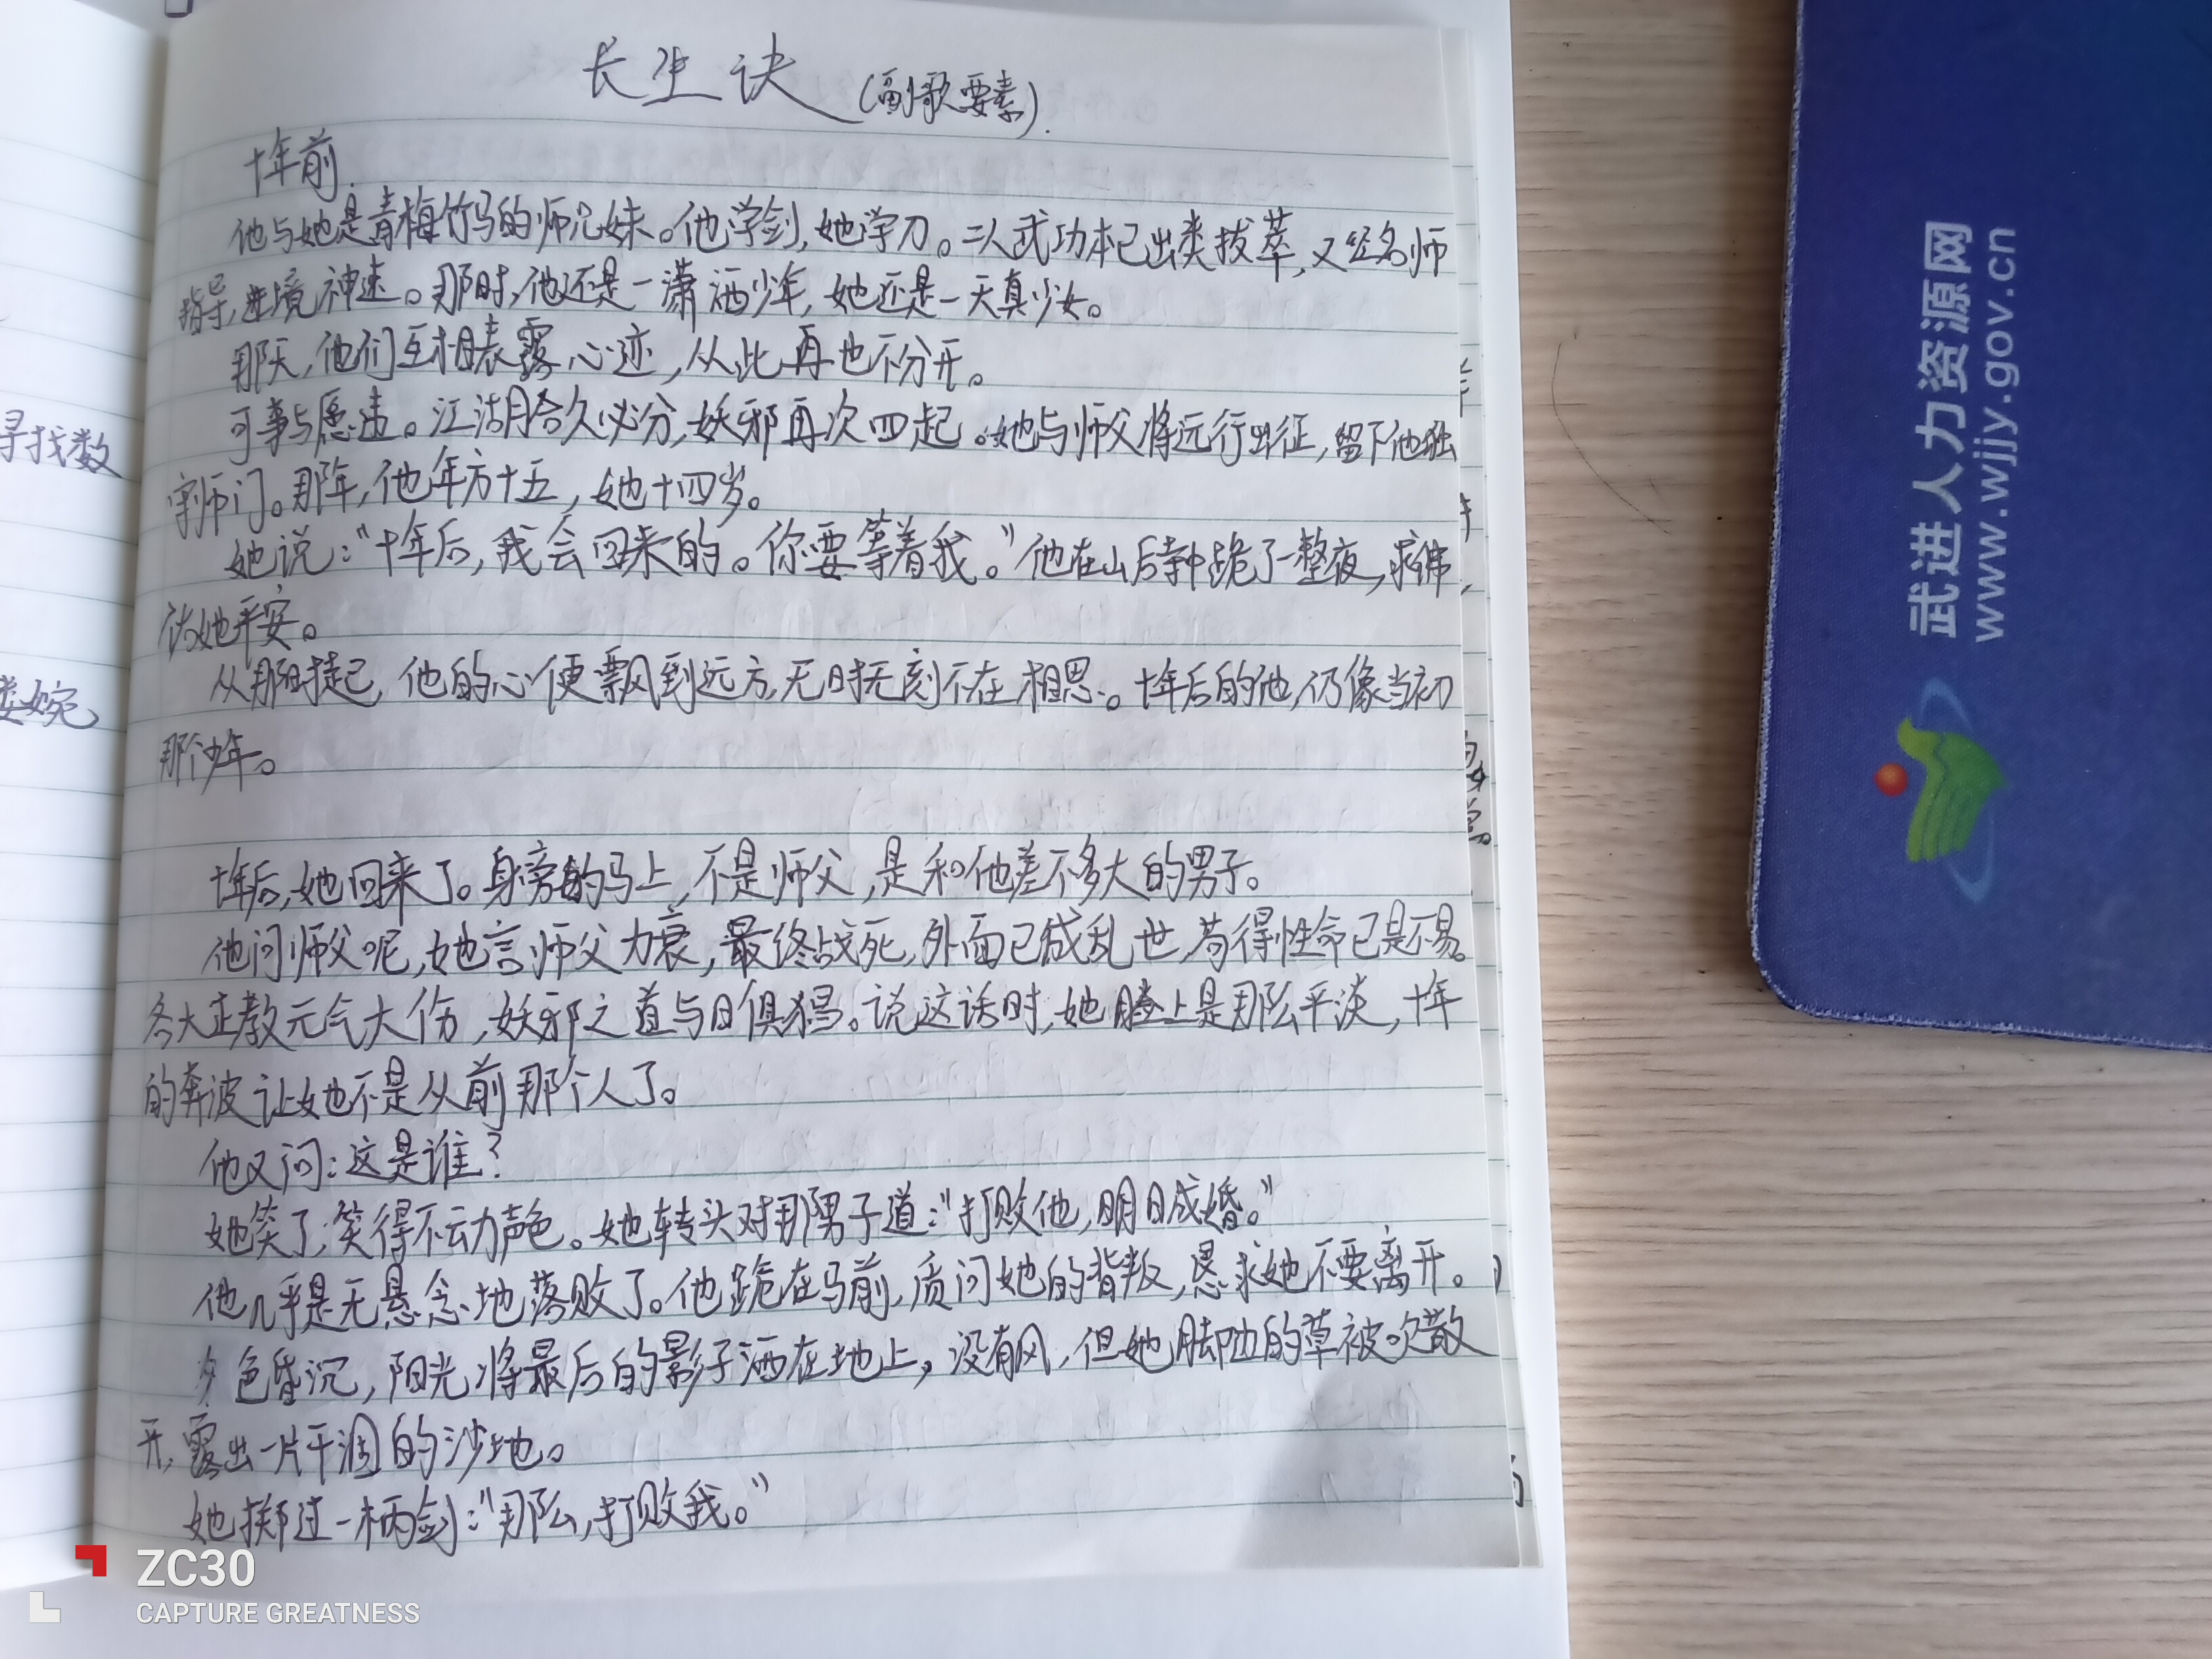 长生诀(副歌要素).
十年前.
他与她是青梅竹马的师兄妹。他学剑,她学刀。二人武功本已出类拔萃,又经名师
指导,进境神速。那时,他还是一潇洒少年,她还是一天真少女。
那天,他们互相表露心迹,从此再也不分开。
可事与愿违。江湖合久必分,妖邪再次四起。她与师父将远行出征,留下他独
守师门。那年,他年方十五,她十四岁。
她说:“十年后,我会回来的。你要等着我。”他在山后寺中跪了一整夜,求佛,
佑她平安。
从那时起,他的心便飘到远方,无时无刻不在相思。十年后的他,仍像当初
那个少年。
十年后,她回来了。身旁的马上,不是师父,是和他差不多大的男子。
他问师父呢,她言师父力衰,最终战死,外面已成乱世,苟得性命已是不易。
各大正教元气大伤,妖邪之道与日俱猖。说这话时,她脸上是那么平淡,十年
的奔波让她不是从前那个人了。
他又问:这是谁?
她笑了,笑得不动声色。她转头对那男子道:“打败他,明日成婚。”
他几乎是无悬念地落败了。他跪在马前,质问她的背叛,恳求她不要离开。
夕色昏沉,阳光将最后的影子洒在地上,没有风,但她脚边的草被吹散
开,露出一片干涸的沙地。
她掷过一柄剑:“那么,打败我。”
寻找数
婉
武进人力资源网
www.wjjy.gov.cn
ZC30
CAPTURE GREATNESS